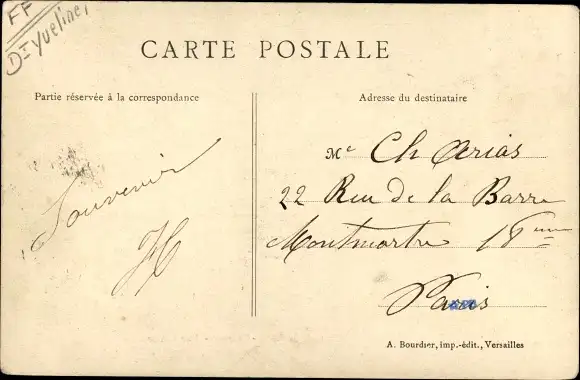 FF
Dt Yvelines
CARTE POSTALE
Partie réservée à la correspondance
Adresse du destinataire
Souvenir
Mr Ch Arias
22 Rue de la Barre
Montmartre 18ème
Paris
A. Bourdier, imp.-édit., Versailles